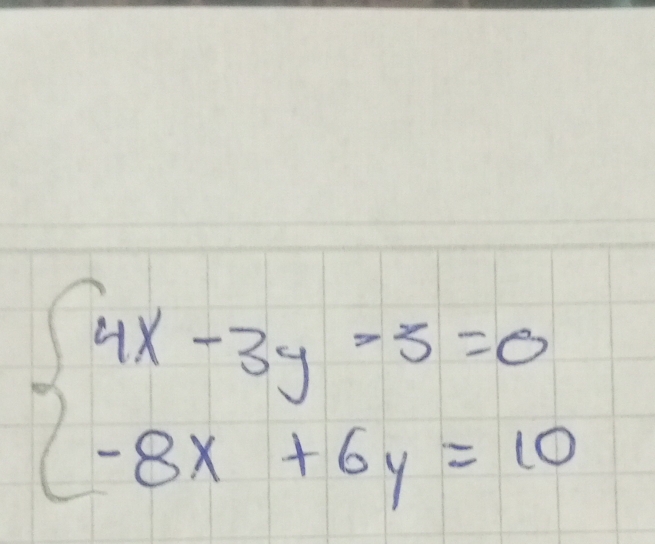 4x - 3y - 5 = 0
-8x + 6y = 10